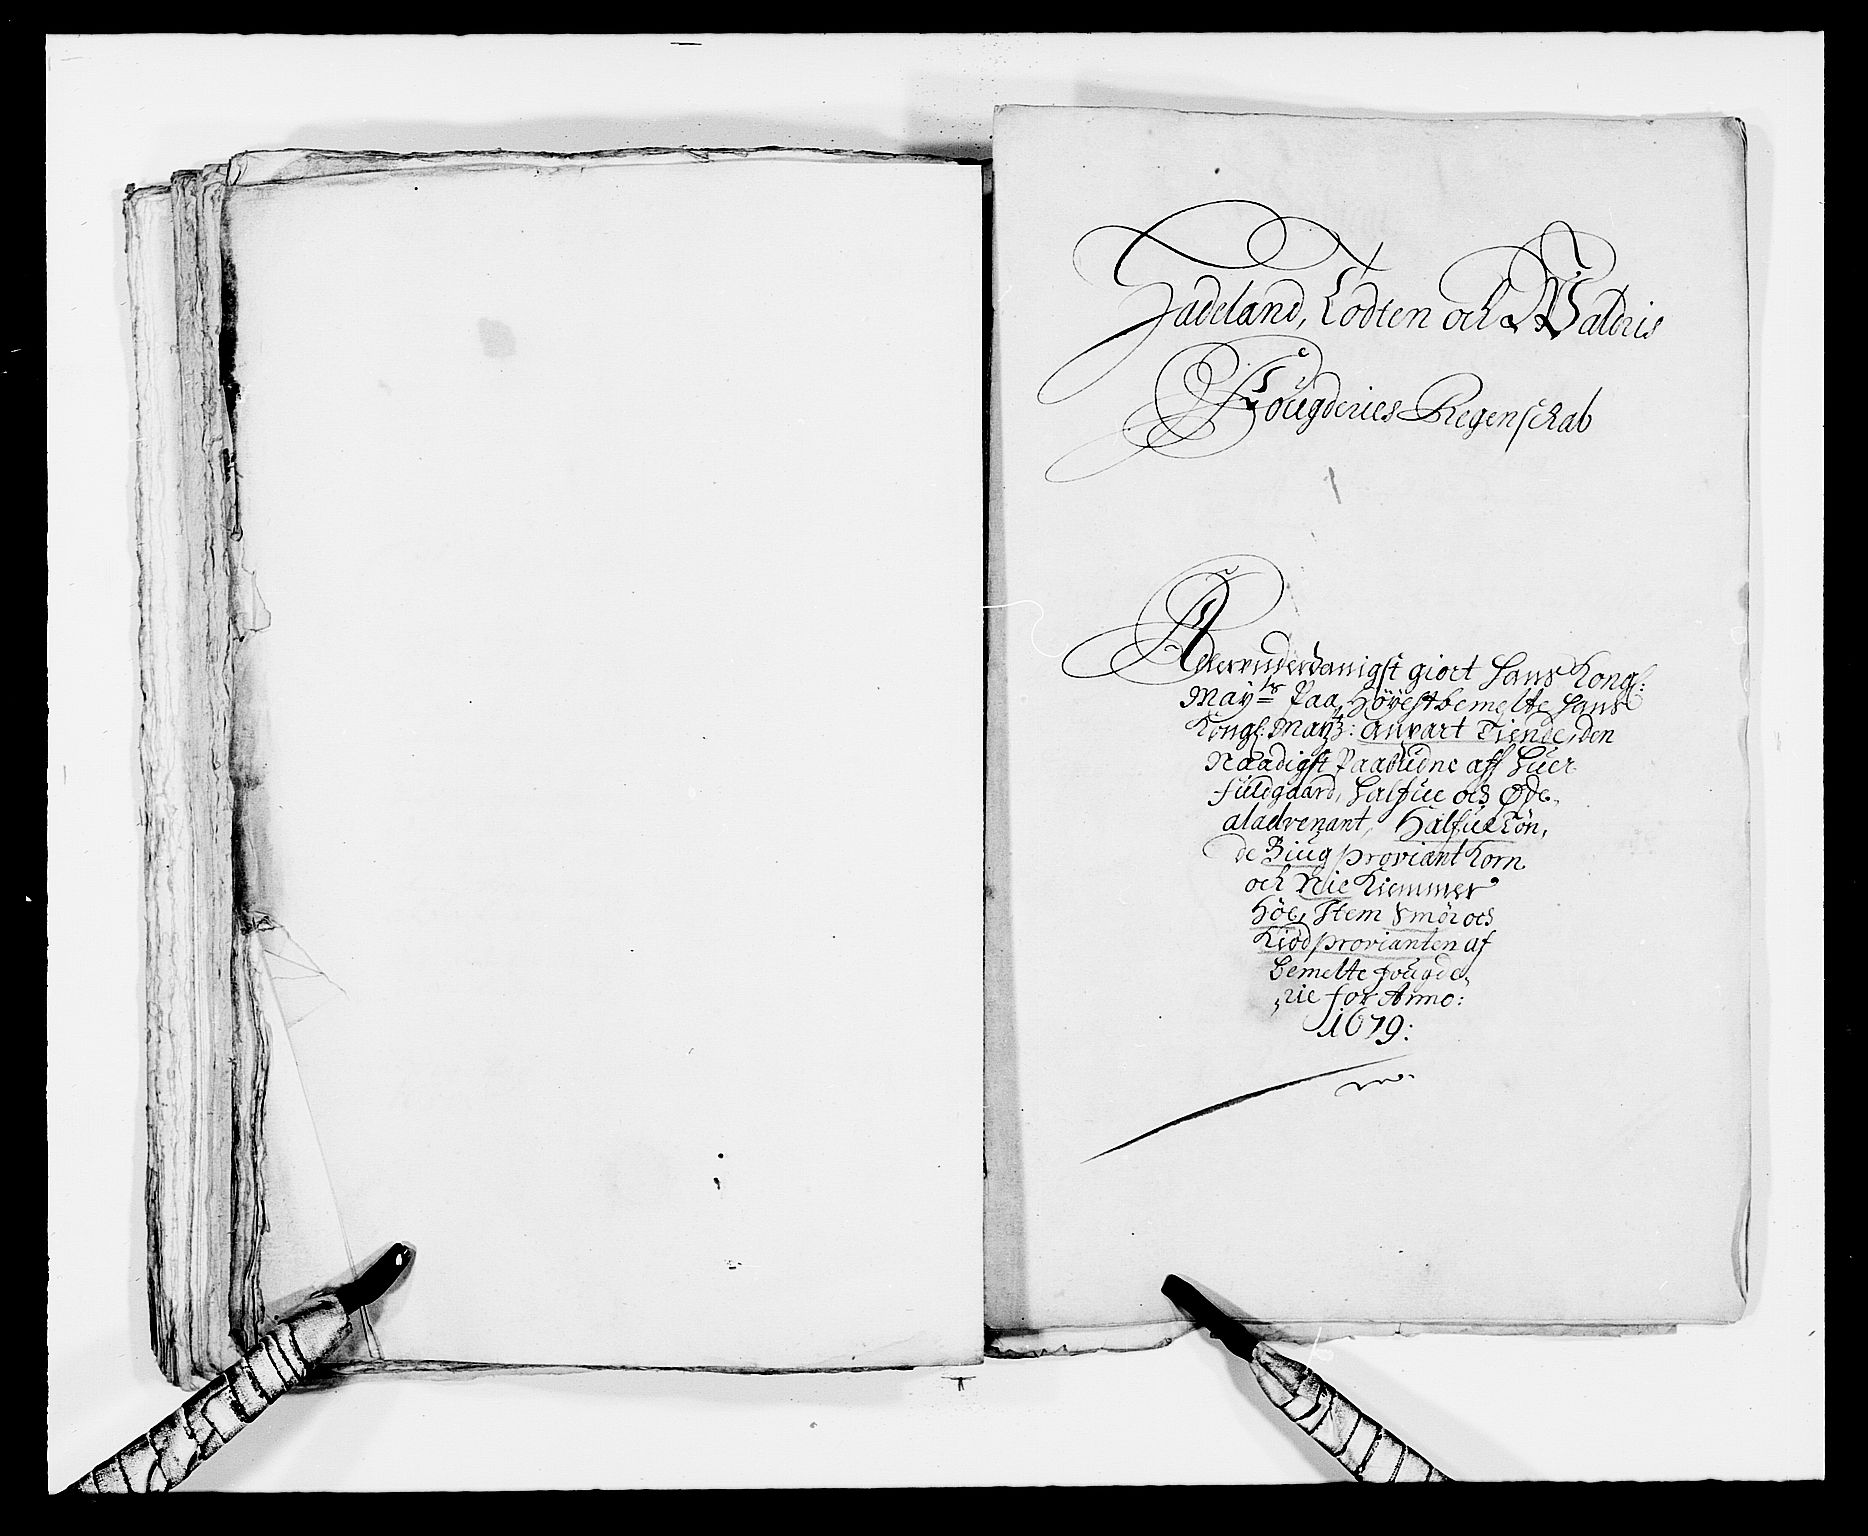 Hadeland, Todten och Valdris
Fougderies Regenschab
Allerunderdanigst giort Hans Kongl:
Mayts Paa Höyestbemelte Hans
Kongl: Maytz: anpart Tiende, den
Naadigst Paabudne aff huer
fuldgaard, halfue och Øde,
aladvenant, Halfue Tön,
de Biug proviant Korn
och Nie Kiemmer
Höe, Item Smör och
Kiöd provianten af
bemelte fougde,
,rie for Anno:
1679: